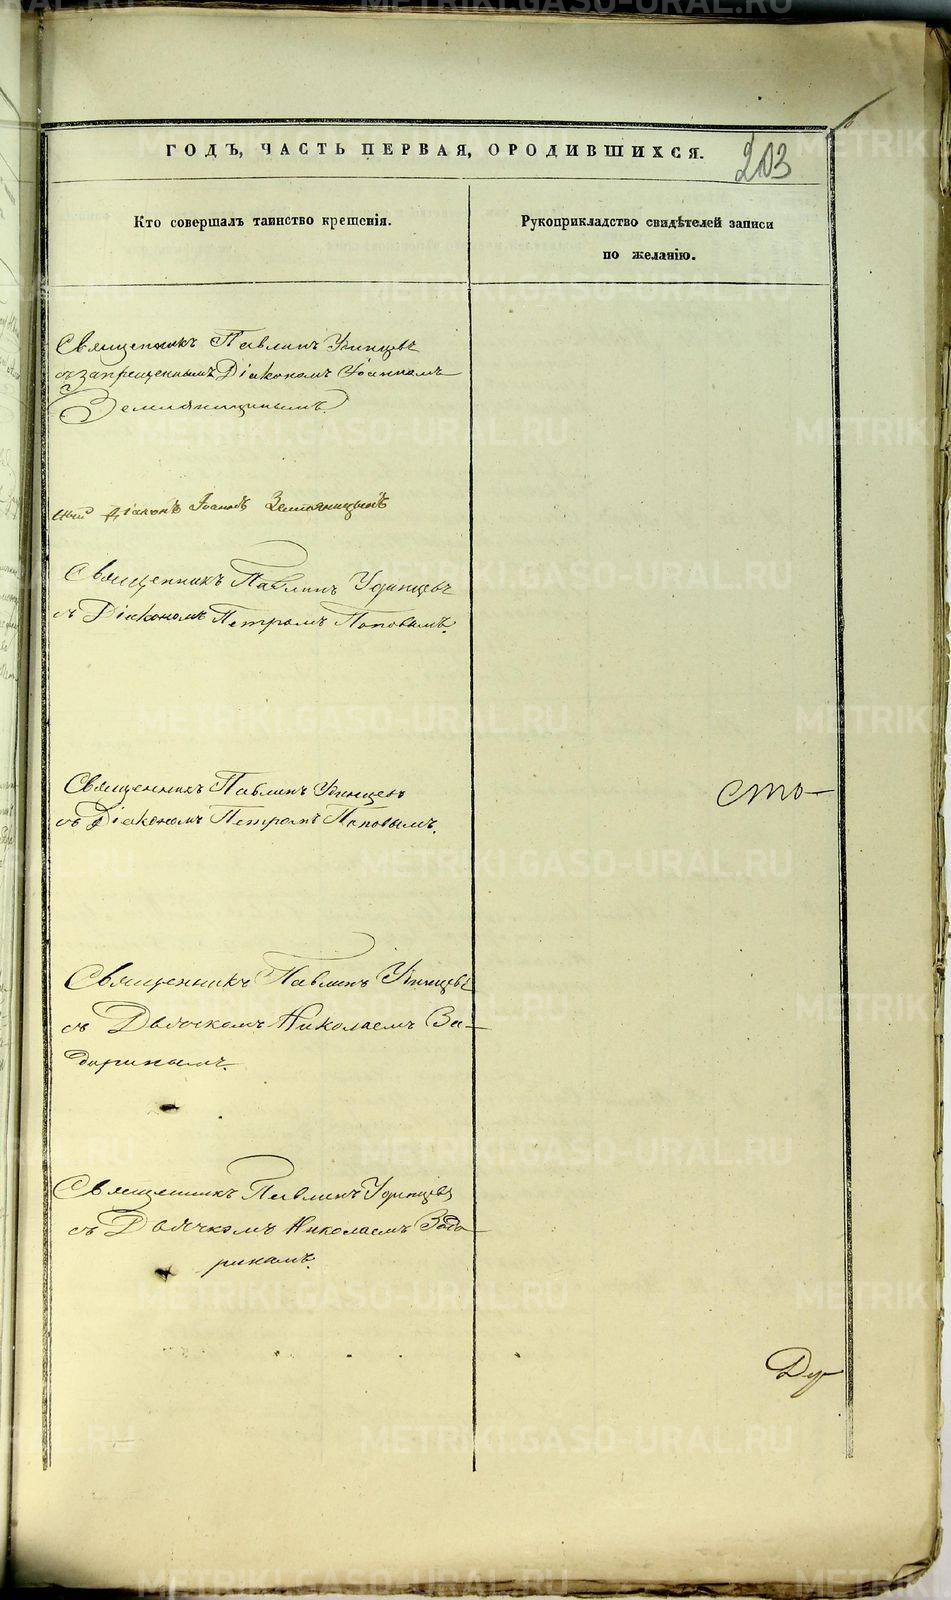 ГОДЪ, ЧАСТЬ ПЕРВАЯ, О РОДИВШИХСЯ.
203
Кто совершалъ таинство крещенія.
Рукоприкладство свидѣтелей записи
по желанію.
Священникъ Павлинъ Удинцевъ
съ запрещеннымъ Діакономъ Іоанномъ
Земляницынымъ.
Діаконъ Іоаннъ Земляницынъ
Священникъ Павлинъ Удинцевъ
съ Діакономъ Петромъ Поповымъ.
Священникъ Павлинъ Удинцевъ
съ Діакономъ Петромъ Поповымъ.
сто-
Священникъ Павлинъ Удинцевъ
съ Дьячкомъ Николаемъ За-
доринымъ.
Священникъ Павлинъ Удинцевъ
съ Дьячкомъ Николаемъ Задо-
ринымъ.
METRIKI.GASO-URAL.RU